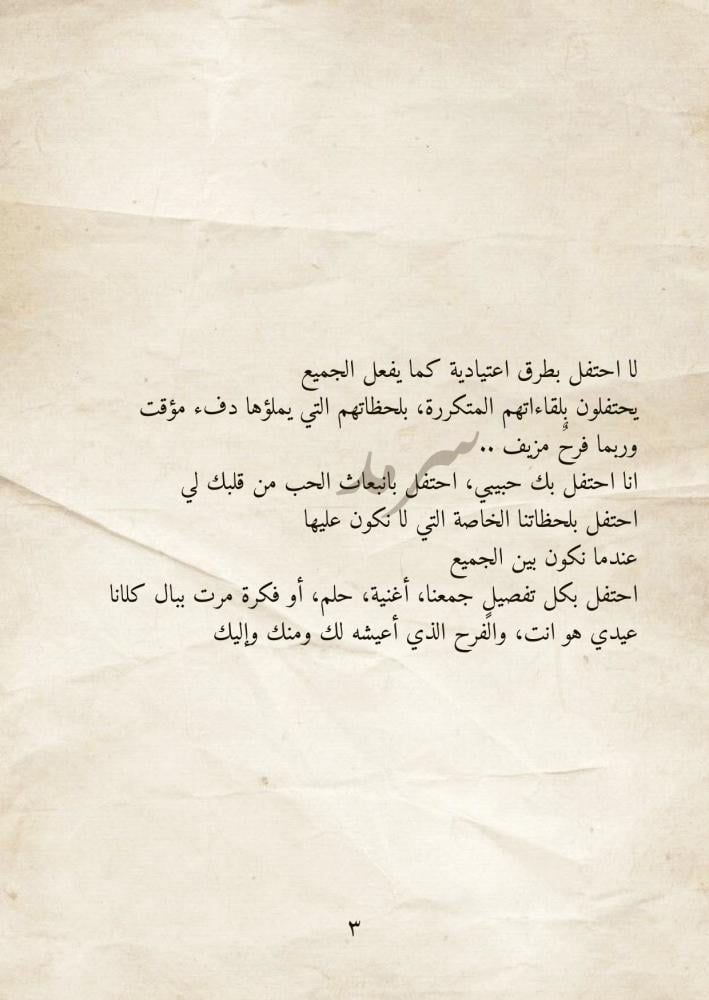 لا احتفل بطرق اعتيادية كما يفعل الجميع
يحتفلون بلقاءاتهم المتكررة، بلحظاتهم التي يملؤها دفء مؤقت
وربما فرحٌ مزيف ..
سرمد
انا احتفل بك حبيبي، احتفل بانبعاث الحب من قلبك لي
احتفل بلحظاتنا الخاصة التي لا نكون عليها
عندما نكون بين الجميع
احتفل بكل تفصيلٍ جمعنا، أغنية، حلم، أو فكرة مرت ببال كلانا
عيدي هو انت، والفرح الذي أعيشه لك ومنك وإليك
٣